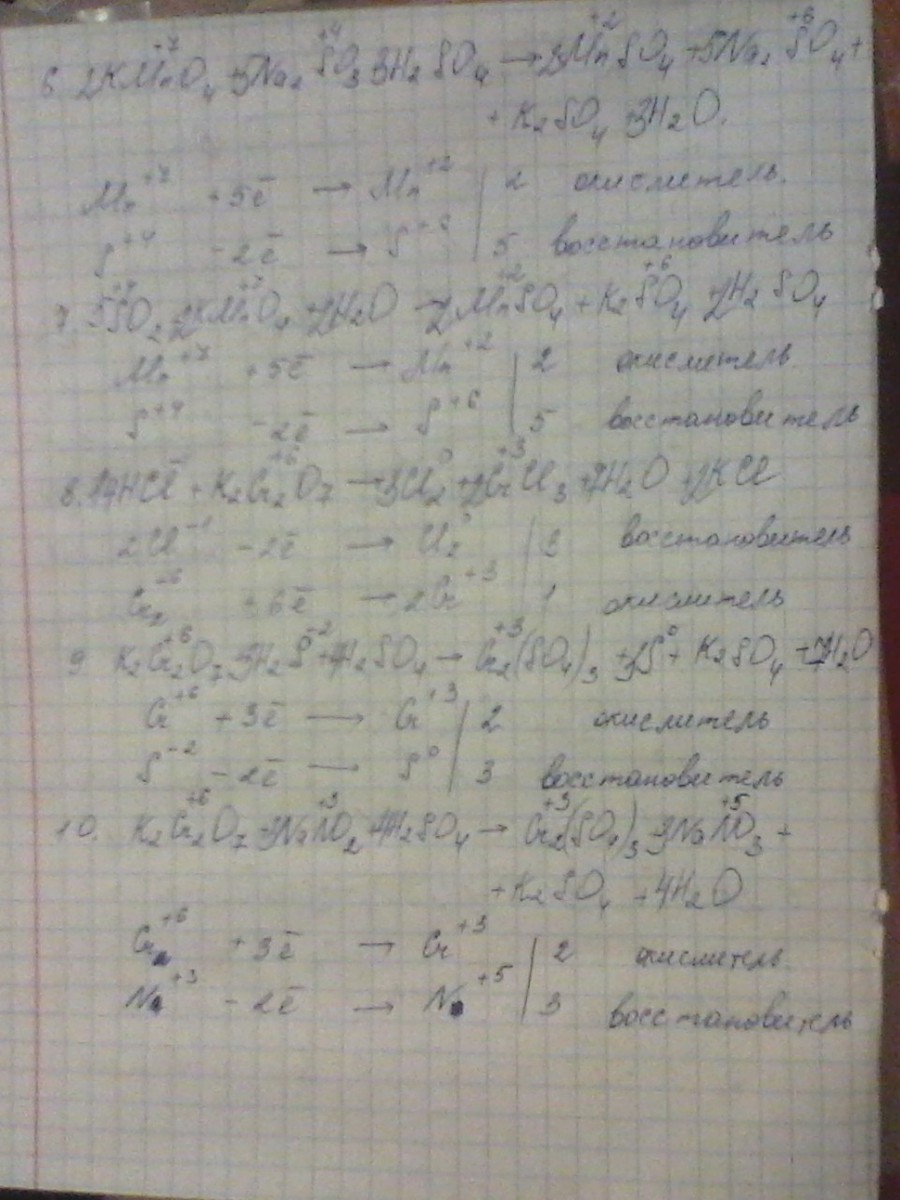 6. 2KMn⁺⁷O₄ + 5Na₂S⁺⁴O₃ 3H₂SO₄ → 2Mn⁺²SO₄ + 5Na₂S⁺⁶O₄ +
+ K₂SO₄ + 3H₂O.
Mn⁺⁷ + 5ē → Mn⁺² | 2 окислитель.
S⁺⁴ - 2ē → S⁺⁶ | 5 восстановитель
7. 5S⁺⁴O₂ + 2KMn⁺⁷O₄ + 2H₂O → 2Mn⁺²SO₄ + K₂S⁺⁶O₄ + 2H₂SO₄
Mn⁺⁷ + 5ē → Mn⁺² | 2 окислитель
S⁺⁴ - 2ē → S⁺⁶ | 5 восстановитель
8. 14HCl⁻ + K₂Cr⁺⁶₂O₇ → 3Cl⁰₂ + 2Cr⁺³Cl₃ + 7H₂O + 2KCl
2Cl⁻¹ - 2ē → Cl₂⁰ | 3 восстановитель
Cr₂⁺⁶ + 6ē → 2Cr⁺³ | 1 окислитель
9. K₂Cr⁺⁶₂O₇ + 3H₂S⁻² + 4H₂SO₄ → Cr⁺³₂(SO₄)₃ + 3S⁰ + K₂SO₄ + 7H₂O
Cr⁺⁶ + 3ē → Cr⁺³ | 2 окислитель
S⁻² - 2ē → S⁰ | 3 восстановитель
10. K₂Cr⁺⁶₂O₇ + 3NaN⁺³O₂ + 4H₂SO₄ → Cr⁺³₂(SO₄)₃ + 3NaN⁺⁵O₃ +
+ K₂SO₄ + 4H₂O
Cr⁺⁶ + 3ē → Cr⁺³ | 2 окислитель
N⁺³ - 2ē → N⁺⁵ | 3 восстановитель